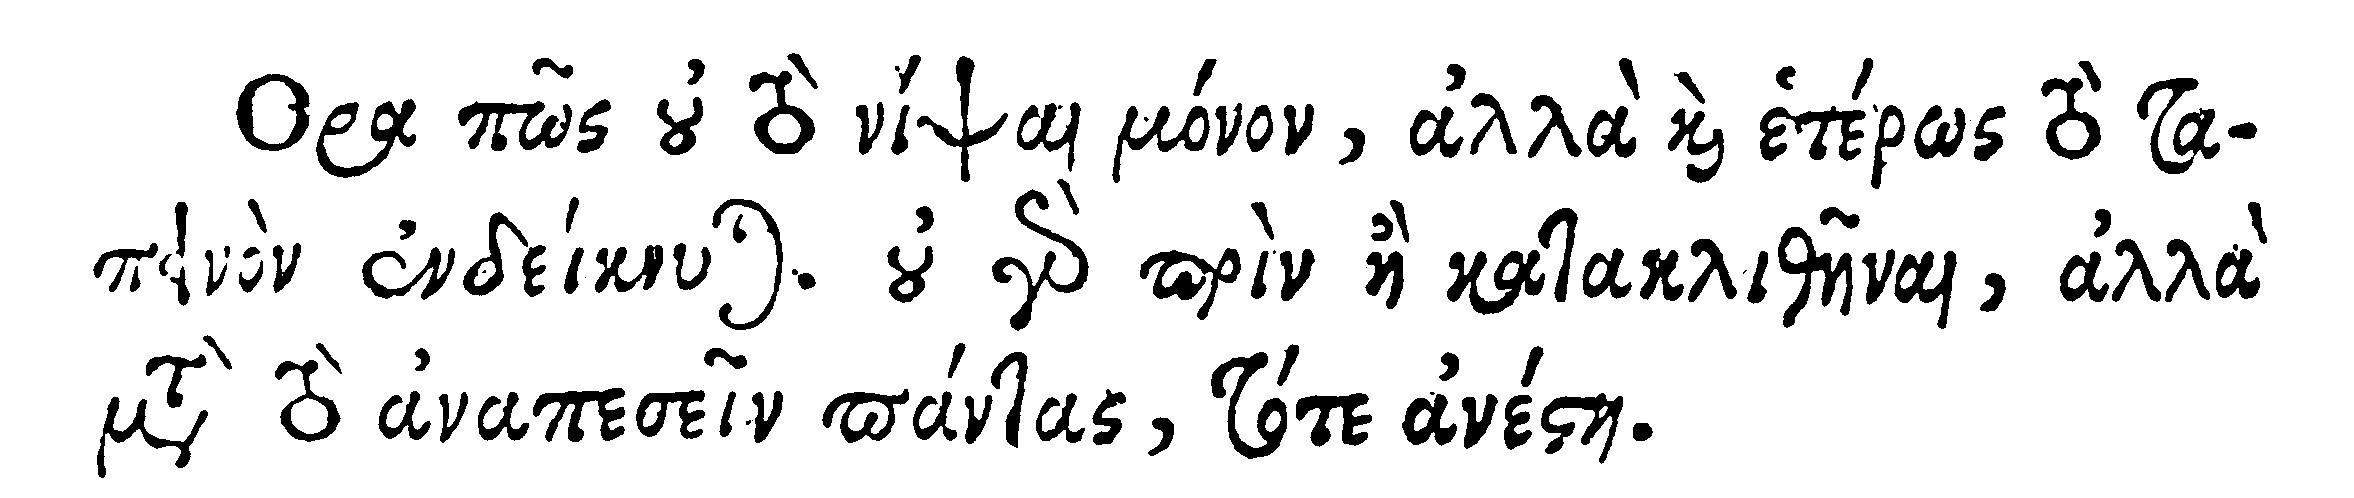 Ορα πῶς ȣ̓ τὸ νίψαι μόνον, ἀλλὰ ϗ̀ ἑτέρως τὸ τα-
πεινὸν ἐνδείκνυται. ȣ̓ γὸ πρὶν ἢ κατακλιθῆναι, ἀλλὰ
μετὰ τὸ ἀναπεσεῖν πάντας, τότε ἀνέϛη.